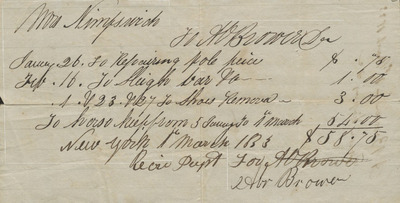 Mrs
To A Brower Dr
Jany 26. To Repairing pole piece $ .75
Feb. 16. To Sleigh bar &c — 1.00
" 1 & 23 & 27 To Shoes Remova — 3.00
To Horse Keep from 5 Jany to 1st march 54.00
New York 1st March 1853 $58.75
Recd Paymt For A Brower
Brower